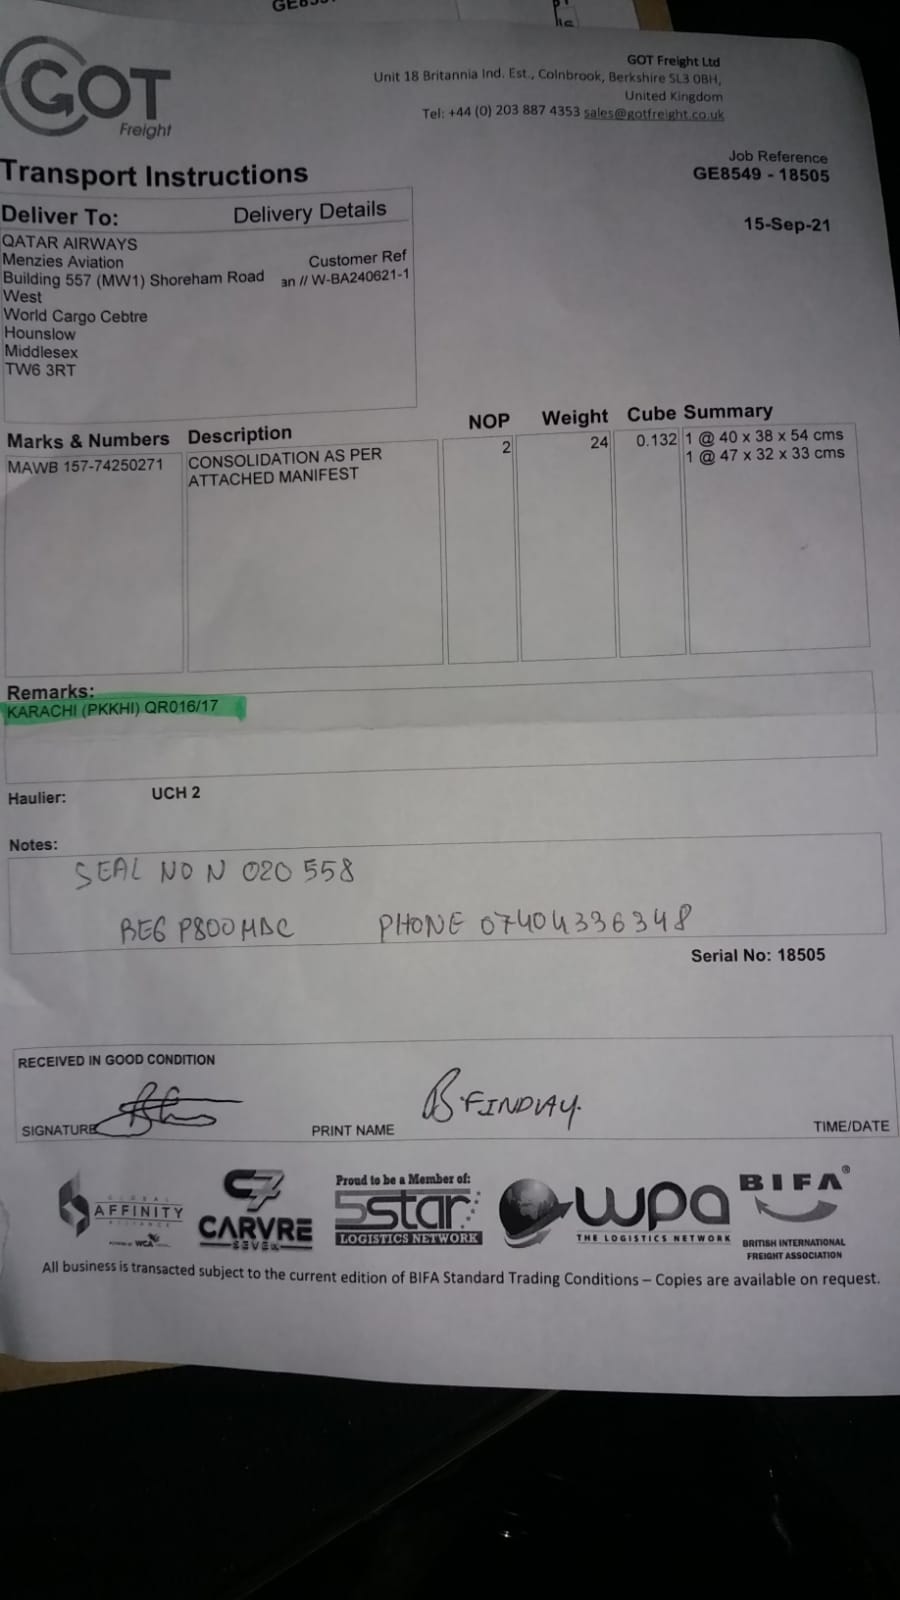 GOT
Freight
GOT Freight Ltd
Unit 18 Britannia Ind. Est., Colnbrook, Berkshire SL3 0BH,
United Kingdom
Tel: +44 (0) 203 887 4353 sales@gotfreight.co.uk
Transport Instructions
Job Reference
GE8549 - 18505
15-Sep-21
Deliver To: Delivery Details
QATAR AIRWAYS
Menzies Aviation
Building 557 (MW1) Shoreham Road
West
World Cargo Cebtre
Hounslow
Middlesex
TW6 3RT
Customer Ref
an // W-BA240621-1
Marks & Numbers Description NOP Weight Cube Summary
MAWB 157-74250271 CONSOLIDATION AS PER 2 24 0.132 1 @ 40 x 38 x 54 cms
ATTACHED MANIFEST 1 @ 47 x 32 x 33 cms
Remarks:
KARACHI (PKKHI) QR016/17
Haulier: UCH 2
Notes:
SEAL NO N 020 558
REG P800HDC PHONE 07404336348
Serial No: 18505
RECEIVED IN GOOD CONDITION
SIGNATURE PRINT NAME B FINDLAY. TIME/DATE
GLOBAL
AFFINITY
ALLIANCE
WCA
C7
CARVRE
SEVEN
Proud to be a Member of:
5star
LOGISTICS NETWORK
wpa
THE LOGISTICS NETWORK
BIFA®
BRITISH INTERNATIONAL
FREIGHT ASSOCIATION
All business is transacted subject to the current edition of BIFA Standard Trading Conditions – Copies are available on request.